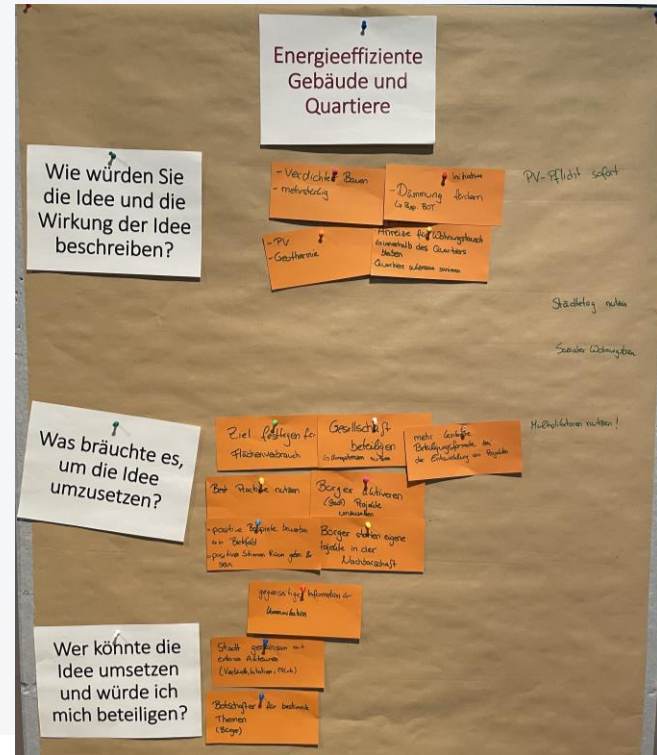 Energieeffiziente
Gebäude und
Quartiere
Wie würden Sie
die Idee und die
Wirkung der Idee
beschreiben?
- Verdichtet Bauen
- mehrstöckig
Initiative
- Dämmung fördern
- PV
- Geothermie
Anreize für Wohnungstausch
innerhalb des Quartiers
bleiben
Quartiers
PV-Pflicht sofort
Städtetag nutzen
Sozialer Wohnungsbau
Was bräuchte es,
um die Idee
umzusetzen?
Ziel festlegen für
Flächenverbrauch
Gesellschaft
beteiligen
mehr
Beteiligungsformate bei
der Entwicklung von Projekten
Multiplikatoren nutzen!
Best Practice nutzen
Bürger aktivieren
(Stadt) Projekte
umzusetzen
- positive Beispiele
in Bielefeld
- positiven Stimmen Raum geben &
sein
Bürger starten eigene
Projekte in der
Nachbarschaft
gegenseitige Information &
Kommunikation
Wer könnte die
Idee umsetzen
und würde ich
mich beteiligen?
Stadt gemeinsam mit
externen Akteuren
Botschafter für bestimmte
Themen
(Bürger)